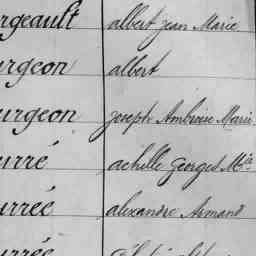 rgeault albert jean Marie
urgeon albert
urgeon joseph Ambroise Marie
urré achille Georges Mie
urrée alexandre Armand